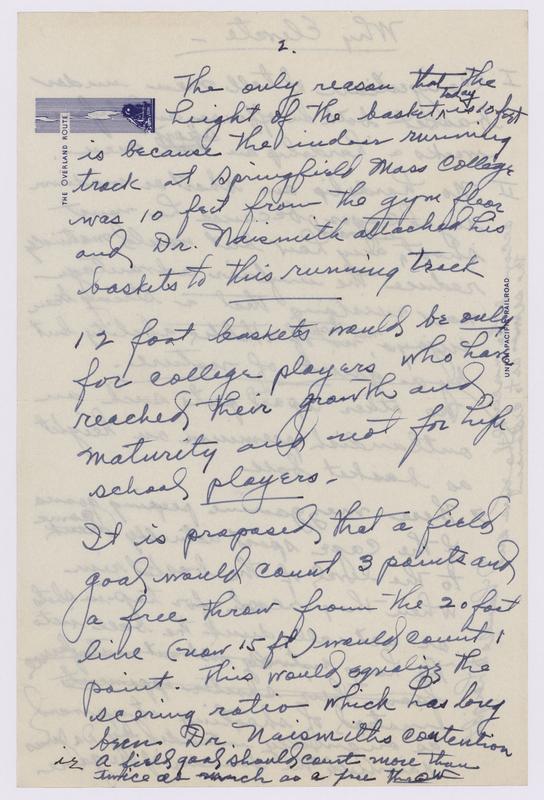 2.
The only reason that the
height of the basket today is 10 feet
is because the indoor running
track at Springfield Mass College
was 10 feet from the gym floor
and Dr. Naismith attached his
baskets to this running track
12 foot baskets would be only
for college players who have
reached their growth and
maturity and not for high
school players.
It is proposed that a field
goal would count 3 points and
a free throw from the 20 foot
line (now 15 ft) would count 1
point. This would equalize the
scoring ratio which has long
been Dr. Naismiths contention
ie a field goal should count more than
twice as much as a free throw
THE OVERLAND ROUTE
UNION PACIFIC RAILROAD